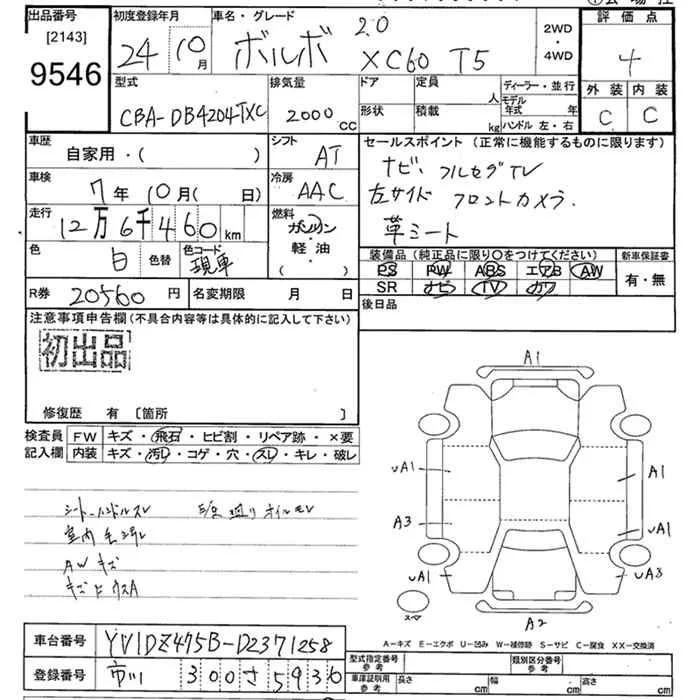 出品番号 [2143] 9546
初度登録年月 24 10月
車名・グレード ボルボ 2.0 XC60 T5
2WD・4WD
評価点 4
型式 CBA-DB4204TXC
排気量 2000cc
ドア 形状
定員 人
積載 kg
ディーラー・並行
モデル年式 年
ハンドル 左・右
外装 内装
C C
車歴 自家用・( )
シフト AT
セールスポイント(正常に機能するものに限ります)
ナビ、フルセグTV
左サイド フロントカメラ
革シート
車検 7年 10月( 日)
冷房 AAC
走行 12万6千460km
燃料 ガソリン・軽油・( )
色 白 色替
色コード 現車
装備品(純正品に限り○をつけてください)
PS PW ABS エアB AW
SR ナビ TV カワ
新車保証書
有・無
R券 20560円
名変期限 月 日
後日品
注意事項申告欄(不具合内容等は具体的に記入して下さい)
初出品
修復歴 有 [箇所 ]
検査員記入欄
FW キズ・飛石・ヒビ割・リペア跡・×要
内装 キズ・汚レ・コゲ・穴・スレ・キレ・破レ
シートハンドルスレ
オイルモレ
AWキズ
A1
UA1 A1
A3 UA1
UA1 UA3
スペア
A2
A-キズ E-エクボ U-凹み W-補修跡 S-サビ C-腐食 XX-交換済
車台番号 YV1DZ475B-D2371258
登録番号 市川 300 さ 5936
型式指定番号 参考
類別区分番号 参考
車庫証明用 参考 長さ cm 幅 cm 高さ cm